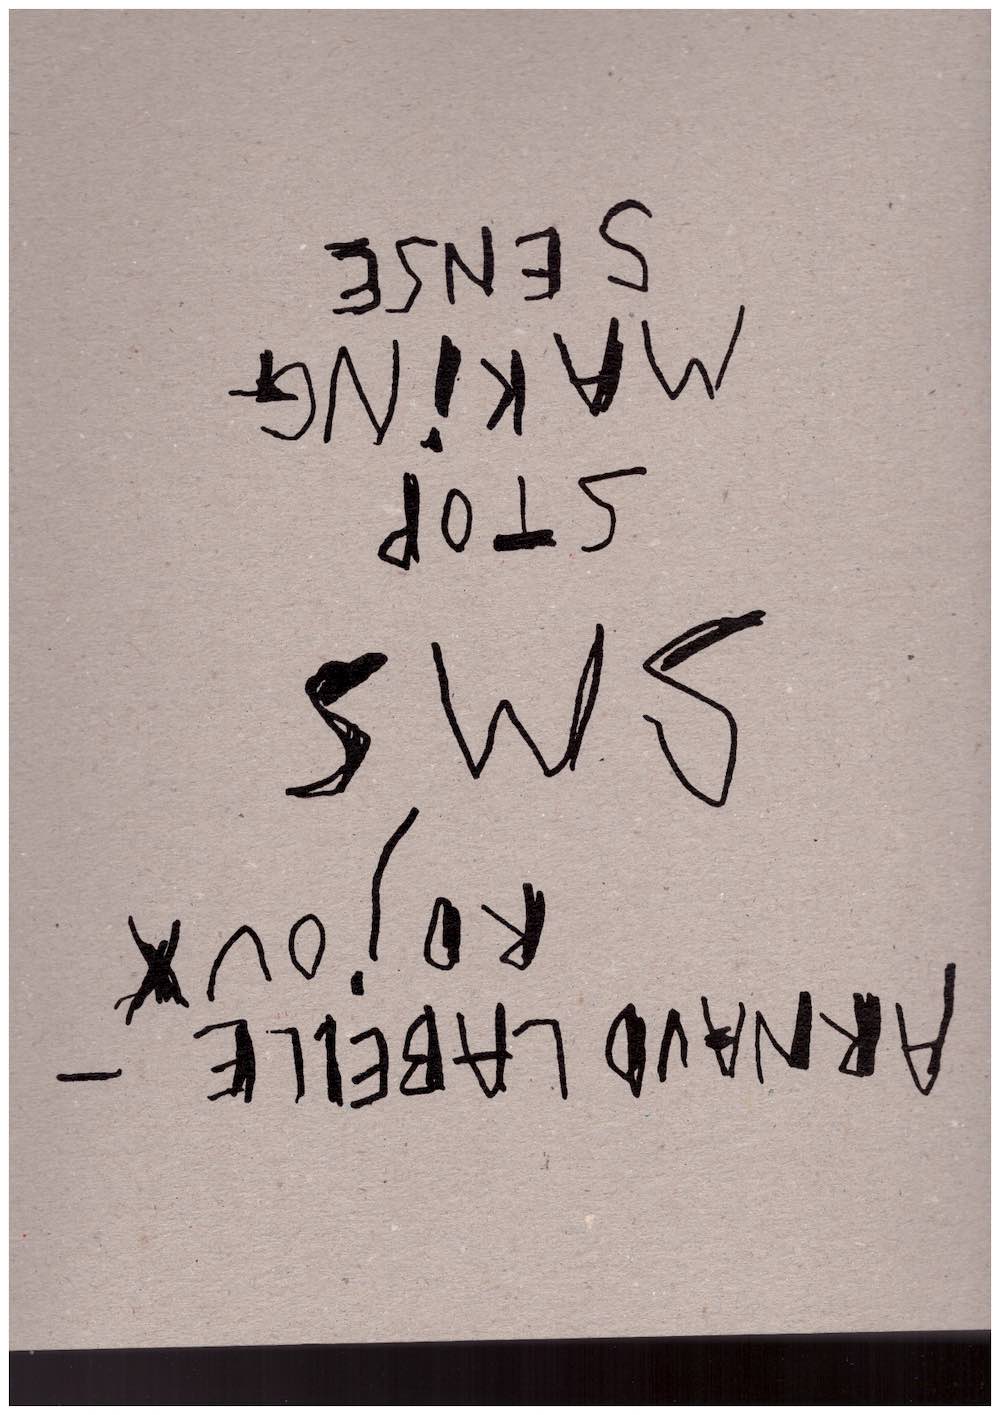 ARNAUD LABELLE -
ROjOUX
SMS
STOP
MAKiNG
SENSE